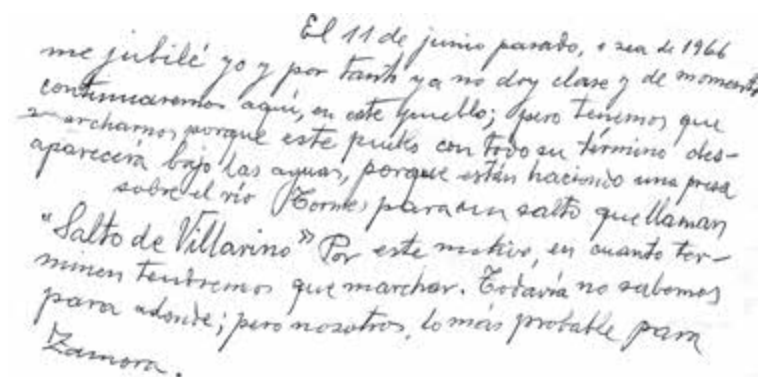 El 11 de junio pasado, o sea de 1966
me jubilé yo y por tanto ya no doy clase y de momento,
continuaremos aquí, en este pueblo; pero tenemos que
marcharnos porque este pueblo con todo su término des-
aparecerá bajo las aguas, porque están haciendo una presa
sobre el río Tormes para un salto que llaman
"Salto de Villarino" Por este motivo, en cuanto ter-
minen tendremos que marchar. Todavía no sabemos
para adonde; pero nosotros, lo más probable para
Zamora.